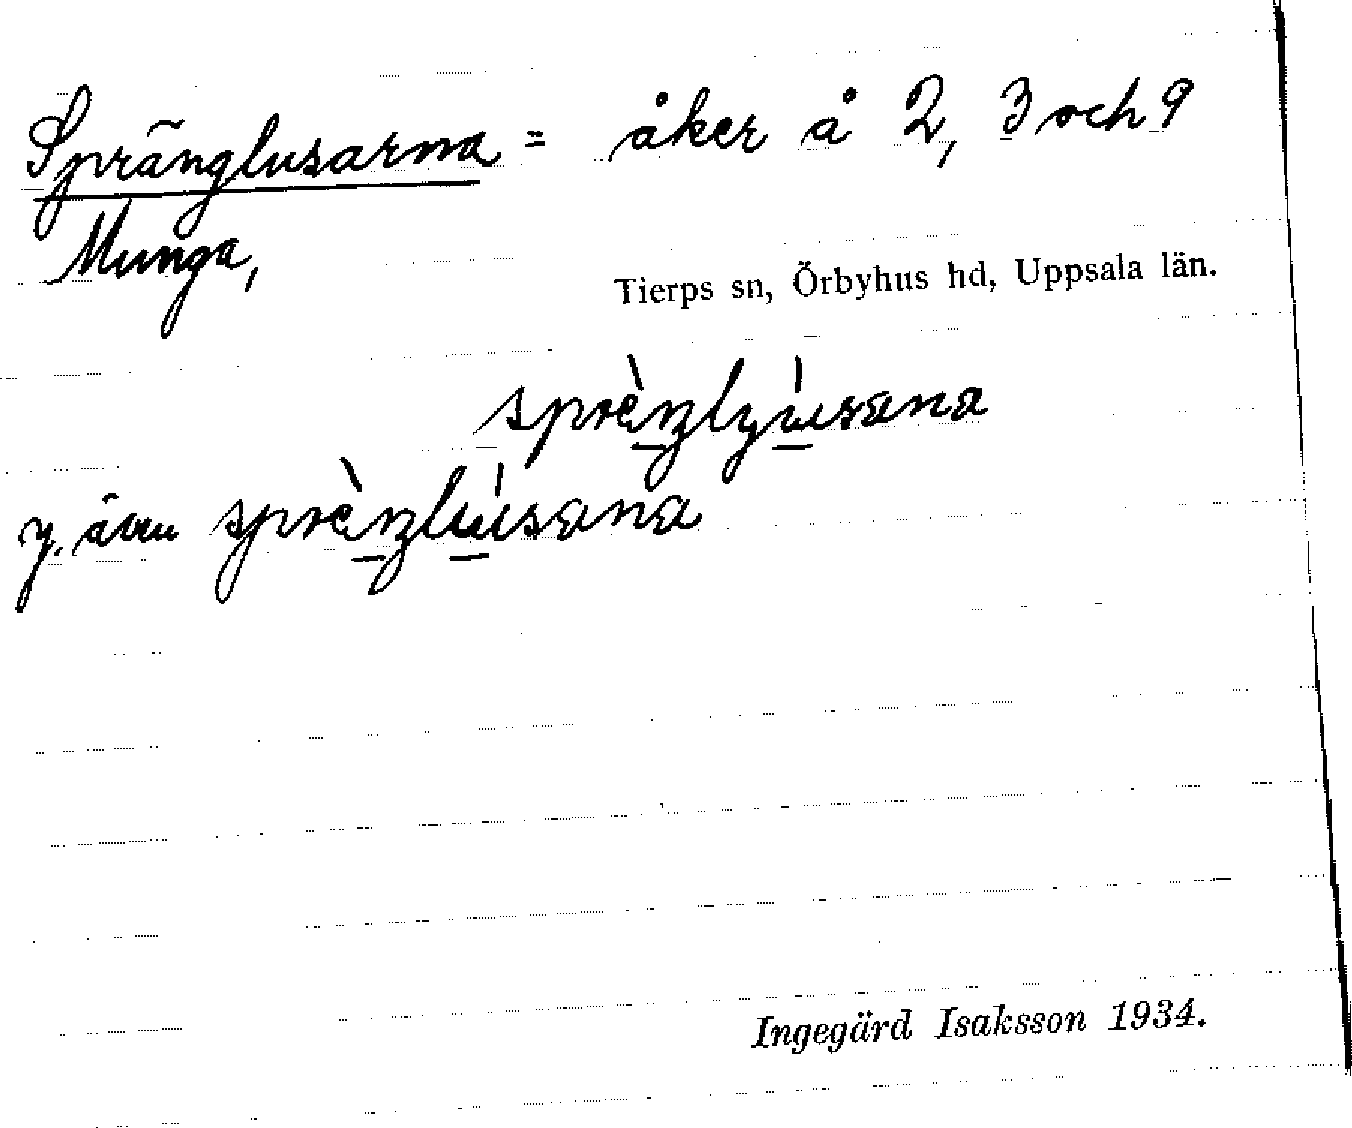 Spränglusarna = åker å 2, 3 och 9
Munga,
Tierps sn, Örbyhus hd, Uppsala län.
sprèŋlyúsana
y. även sprèŋlúsana
Ingegärd Isaksson 1934.